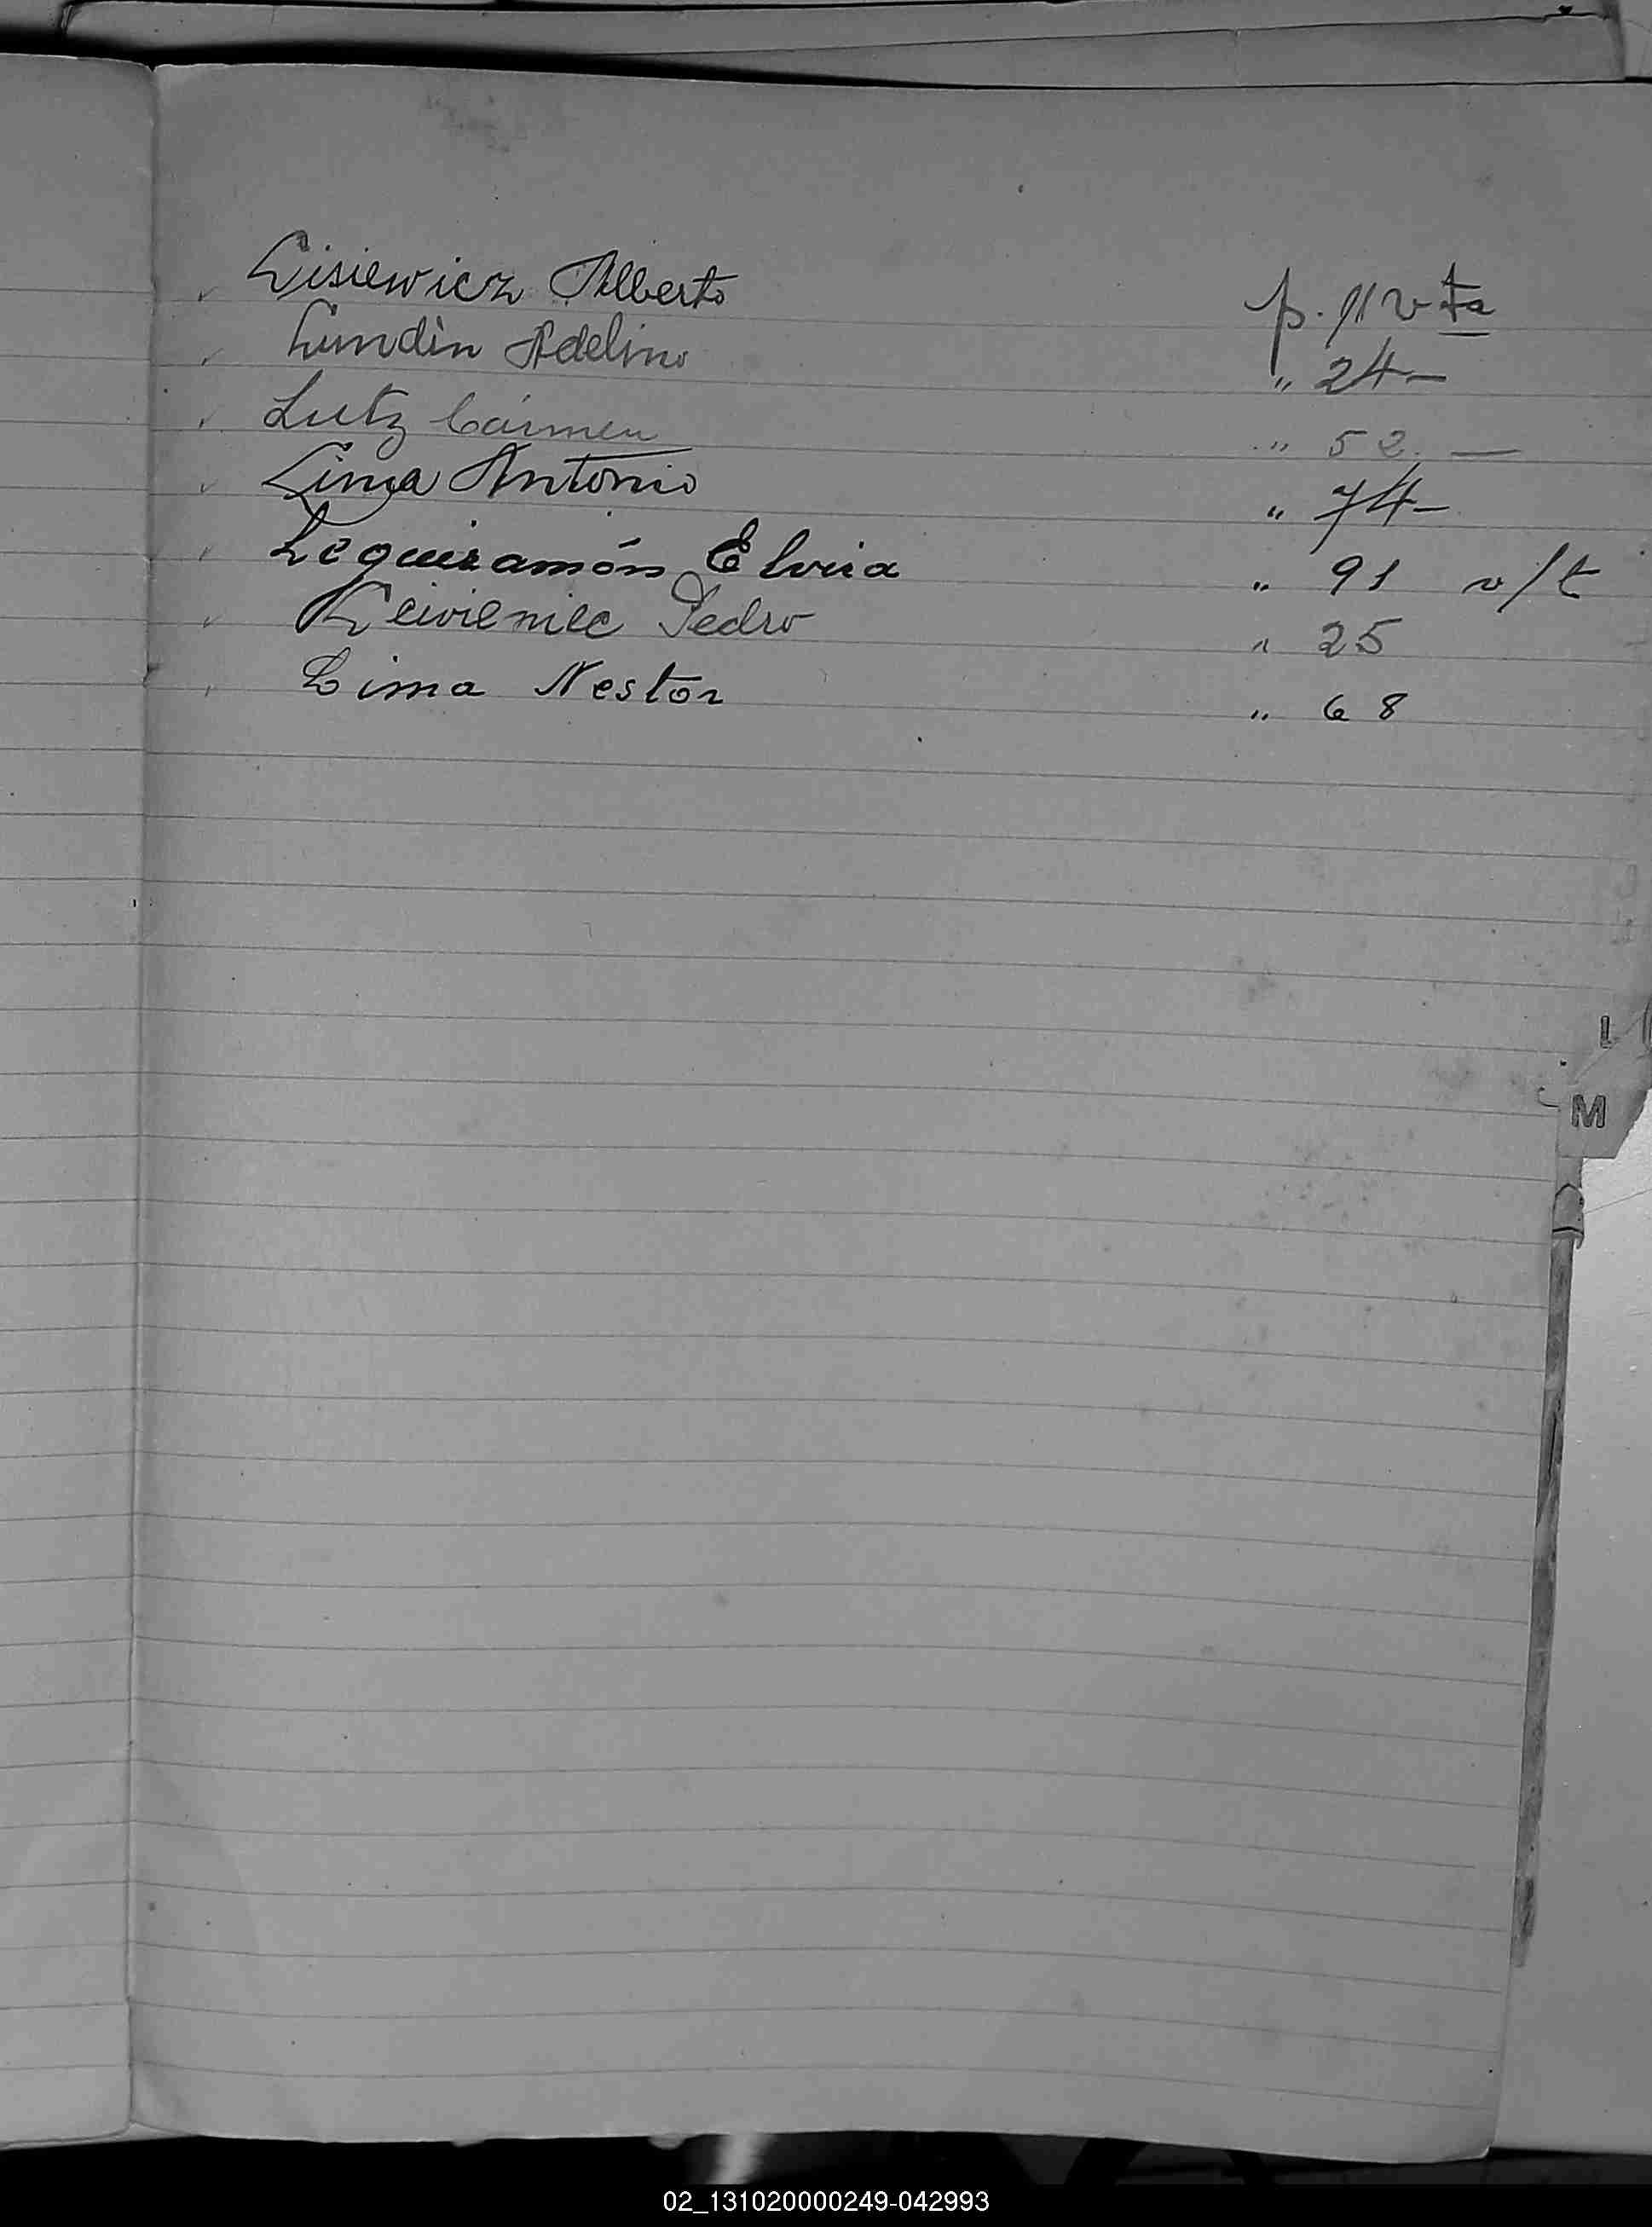 Lisiewicz Alberto p. 11 vta
Lundin Adelino " 24 —
Lutz Carmen " 52. —
Lima Antonio " 74 —
Leguizamón Elvira " 91 v/t
Pedro " 25
Lima Nestor " 68
L
M
02_131020000249-042993